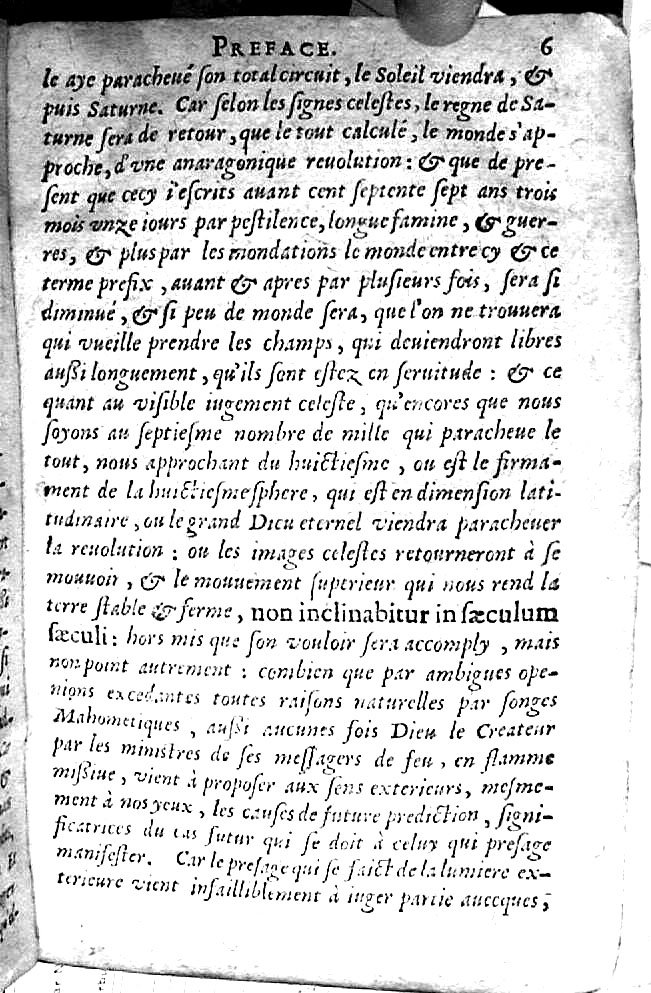 PREFACE. 6
le aye paracheué ſon total circuit, le Soleil viendra, &
puis Saturne. Car ſelon les ſignes celeſtes, le regne de Sa-
turne ſera de retour, que le tout calculé, le monde s'ap-
proche, d'vne anaragonique reuolution: & que de pre-
ſent que cecy i'eſcrits auant cent ſeptente ſept ans trois
mois vnze iours par peſtilence, longue famine, & guer-
res, & plus par les inondations le monde entre cy & ce
terme prefix, auant & apres par pluſieurs fois, ſera ſi
diminué, & ſi peu de monde ſera, que l'on ne trouuera
qui vueille prendre les champs, qui deuiendront libres
auſſi longuement, qu'ils ſont eſtez en ſeruitude: & ce
quant au viſible iugement celeſte, qu'encores que nous
ſoyons au ſeptieſme nombre de mille qui paracheue le
tout, nous approchant du huictieſme, ou eſt le firma-
ment de la huictieſme ſphere, qui eſt en dimenſion lati-
tudinaire, ou le grand Dieu eternel viendra paracheuer
la reuolution: ou les images celeſtes retourneront à ſe
mouuoir, & le mouuement ſuperieur qui nous rend la
terre ſtable & ferme, non inclinabitur in ſæculum
ſæculi: hors mis que ſon vouloir ſera accomply, mais
non point autrement: combien que par ambigues ope-
nions excedantes toutes raiſons naturelles par ſonges
Mahometiques, auſſi aucunes fois Dieu le Createur
par les miniſtres de ſes meſſagers de feu, en flamme
miſſiue, vient à propoſer aux ſens exterieurs, meſme-
ment à nos yeux, les cauſes de future prediction, ſigni-
ficatrices du cas futur qui ſe doit à celuy qui preſage
manifeſter. Car le preſage qui ſe faict de la lumiere ex-
terieure vient infailliblement à iuger partie auecques,